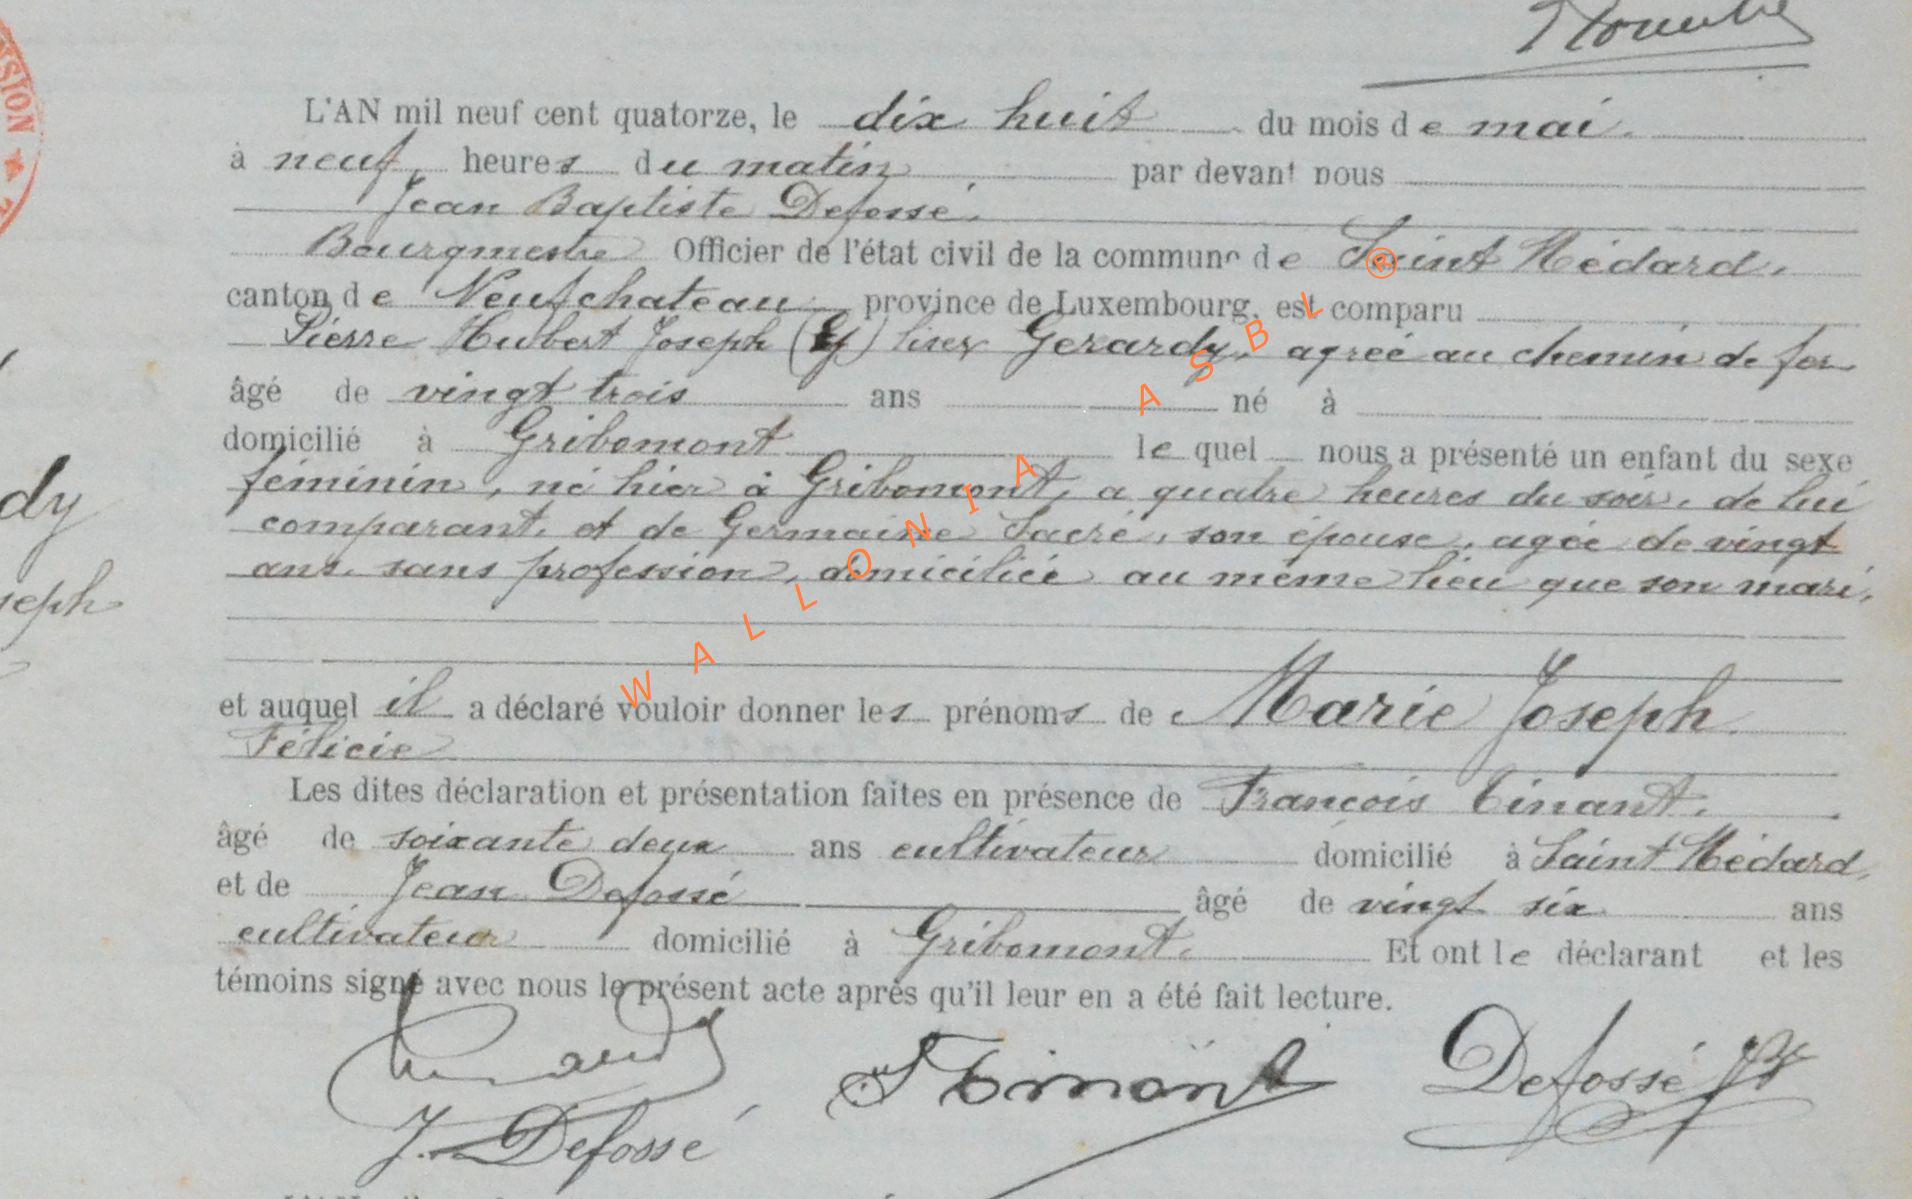 L'AN mil neuf cent quatorze, le dix huit du mois de mai.
à neuf heures du matin par devant nous
Jean Baptiste Defossé.
Bourgmestre Officier de l'état civil de la commune de Saint Médard,
canton de Neufchateau province de Luxembourg, est comparu
Pierre Hubert Joseph ( ) lisez Gerardy, agréé au chemin de fer
âgé de vingt trois ans né à
domicilié à Gribomont le quel nous a présenté un enfant du sexe
féminin, né hier à Gribomont, a quatre heures du soir, de lui
comparant, et de Germaine Sacré, son épouse, agée de vingt
ans, sans profession, domiciliée au même lieu que son mari,
et auquel il a déclaré vouloir donner les prénoms de Marie Joseph
Félicie
Les dites déclaration et présentation faites en présence de François Tinant.
âgé de soixante deux ans cultivateur domicilié à Saint Médard,
et de Jean Defossé âgé de vingt six ans
cultivateur domicilié à Gribomont. Et ont le déclarant et les
témoins signé avec nous le présent acte après qu'il leur en a été fait lecture.
F Tinant Defossé
J. Defossé
dy
seph
NSION
WALLONIA ASBL ®